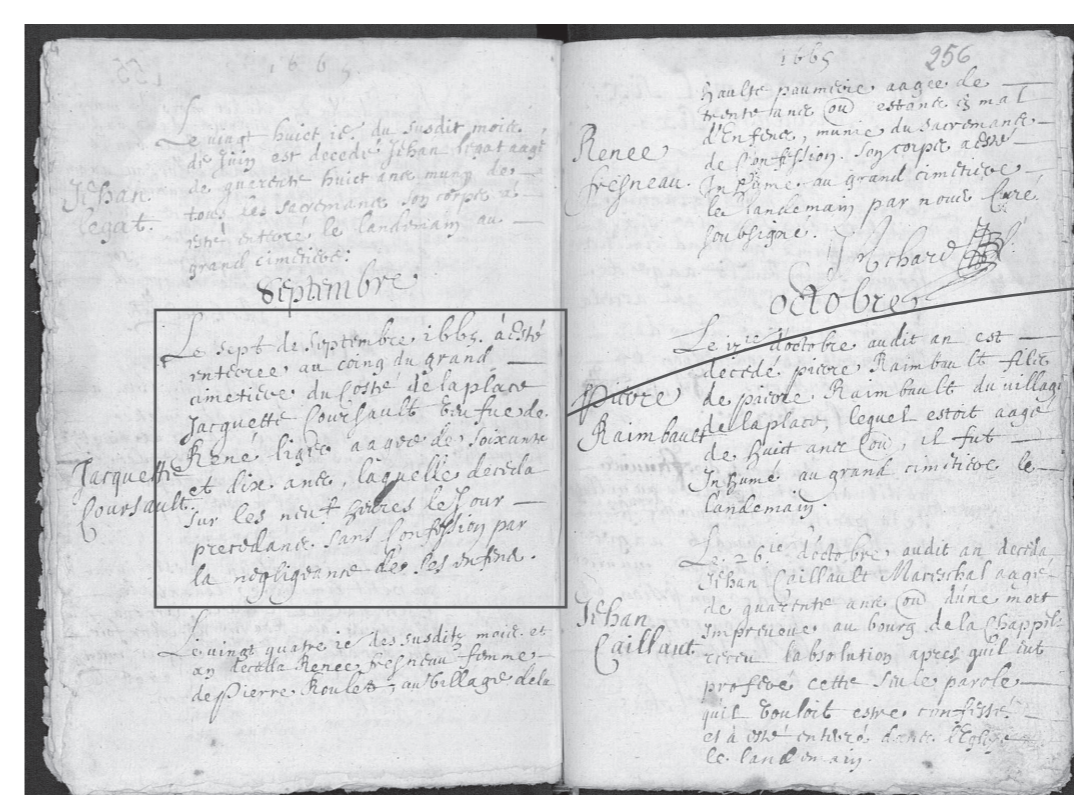 1665
Le vingt huict ie. du susdit moice
de Juin est decedé Jehan legat aagé
de querente huict ance muny de
tous les sacremance son corps a
esté enterré le landemain au
grand cimetiere.
Jehan
legat.
Septembre
Le sept de septembre 1665. à esté
enterree au coing du grand
cimetiere du costé de la place
Jacquette Coursault veufue de
René ligré aagee de soixante
et dix ance, laquelle deceda
sur les neuf heures le Jour
precedance sans Confession par
la negligeance de ses enfens.
Jacquette
Coursault.
Le vingt quatre ie des susdits moice et
an deceda Renee fresneau femme
de Pierre Roulet, au village de la
1665
256
haulte paumerie aagee de
trente ance ou estance en mal
d'Enfence, munie du sacremance
de Confession. son corps a esté
In hume au grand cimetiere
le landemain par nous Curé
soubsigné.
Renee
fresneau.
Octobre
Le d'octobre audit an est
decedé pierre Raimbault filz
de pierre Raimbault du village
de la place, lequel estoit aagé
de huit ance ou, il fut
Inhumé au grand cimetiere le
landemain.
Pierre
Raimbault
Le 26ie d'octobre audit an deceda
Jehan Caillault Mareschal aagé
de quarente ance ou d'une mort
Impreueue au bourg de la Chappelle
receu labsolution apres quil eut
proferé cette seule parole
quil vouloit estre confessé
et à esté enterré dance l'Eglise
le landemain.
Jehan
Caillaut